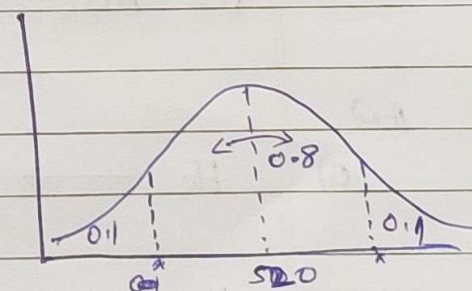 0.8
0.1 0.1
520